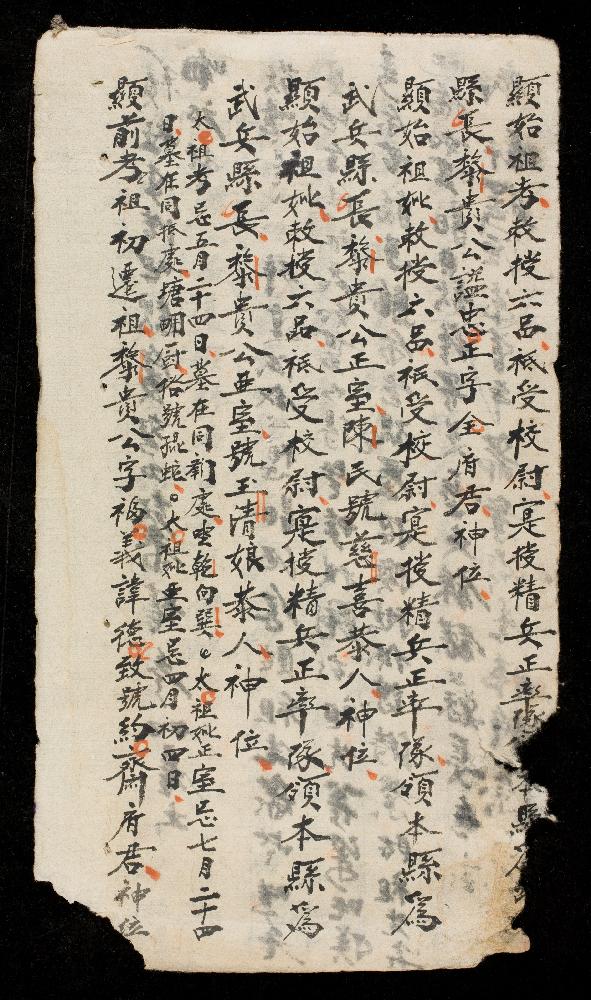 顯始祖考敕授六品祇受校尉寔授精兵正率隊
縣長黎貴公謚忠正字全府君神位
顯始祖妣敕授六品祇受校尉寔授精兵正率隊領本縣為
武安縣長黎貴公正室陳氏號慈喜恭人神位
顯始祖妣敕授六品祇受校尉寔授精兵正率隊領本縣為
武安縣長黎貴公亞室號玉清娘恭人神位
太祖考忌五月二十四日墓在同新處坐乾向巽太祖妣正室忌七月二十四
日墓在同處塘明俗號太祖妣亞室忌四月初四日
顯前考祖初遷祖黎貴公字福義諱德致號約齋府君神位